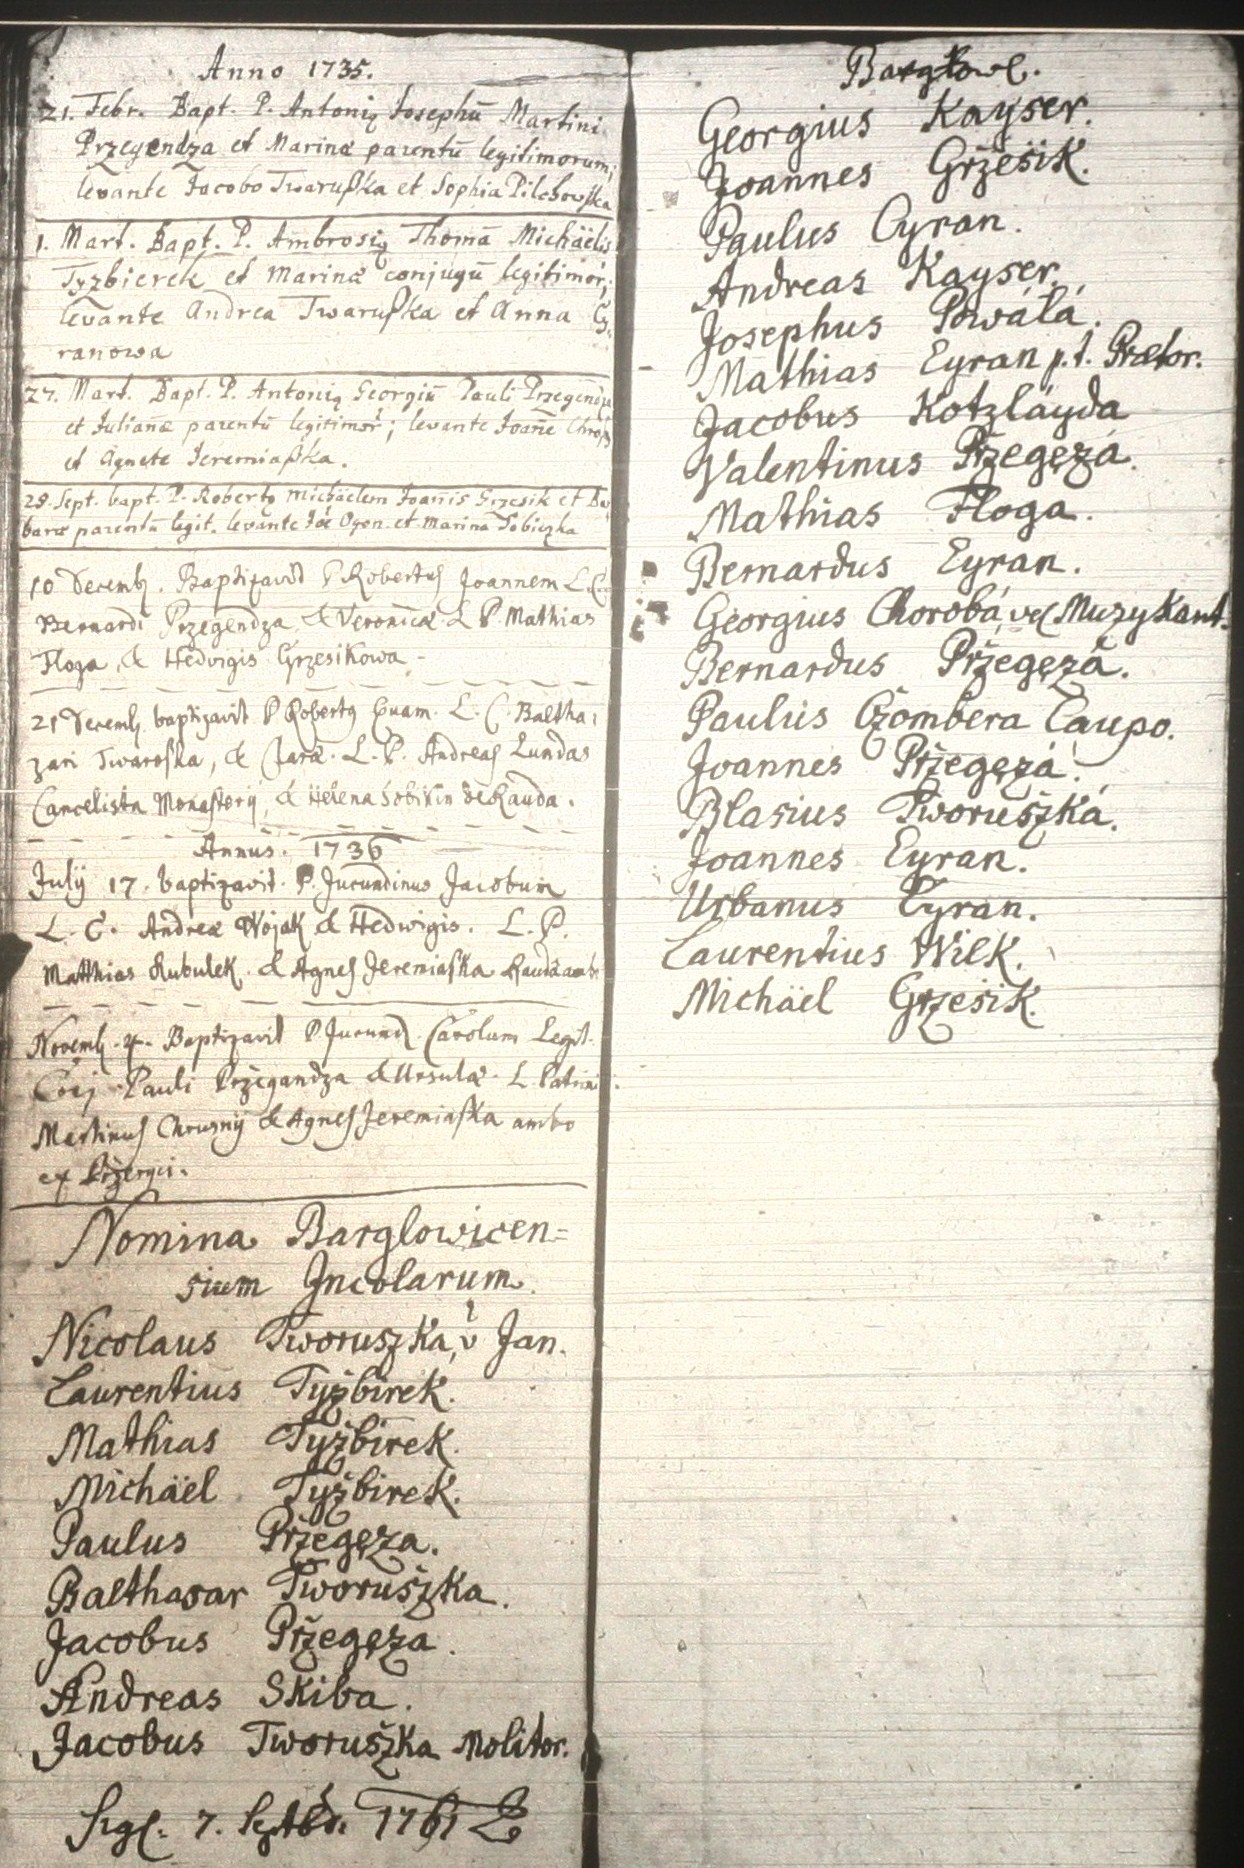 Anno 1735.
21. Febr. Bapt. P. Antoniq Josephū Martini
Przegendza et Marinæ parentū legitimorum;
levante Jacobo Twarußka et Sophia Pilchowska
1. Mart. Bapt. P. Ambrosiq Thomā Michäelis
Tyzbierek et Marinæ conjugū legitimor;
levante Andrea Twarußka et Anna Cy-
ranowa
27. Mart. Bapt. P. Antoniq Georgiū Pauli Przegendza
et Julianæ parentū legitimor; levante Joanē
et Agnete Jeremiaßka.
28. Sept. bapt. P. Roberto Michäelem Joanis Grzesik et Bar
baræ parentū legit. levante Joē Ogon et Marina Sobiczka
10 Decemb. Baptizavit P Robertus Joannem L. C.
Bernardi Przegendza & Veronicæ L P. Mathias
Floga & Hedvigis Grzesikowa -
21 Decemb. baptizavit P Robertq Evam L. C. Baltha:
zari Twaroska, & Claræ. L. P. Andreas Lundas
Cancelista Monasterij & Helena Sobikin de Rauda.
Annus. 1736
July 17. baptizavit P. Jucundinus Jacobum
L. C. Andreæ Wojak & Hedwigis. L. P.
Matthias Kubulek & Agnes Jeremiaska
Novemb. 4. Baptizavit P Jucund. Carolum Legit.
Conj Pauli Przegandza & Ursulæ. L. Patrini
Martinus & Agnes Jeremiaska ambo
ex
Nomina Barglowicen=
sium Jncolarum.
Nicolaus Tworuszka, v Jan.
Laurentius Tyżbirek.
Mathias Tyżbirek.
Michäel Tyżbirek.
Paulus Przegęza.
Balthasar Tworuszka.
Jacobus Przegęza.
Andreas Skiba.
Jacobus Tworuszka Molitor.
7. 1761
Bargłowe.
Georgius Kayser.
Joannes Grzesik.
Paulus Cyran.
Andreas Kayser.
Josephus Powálá.
Mathias Cyran p. t. Prætor.
Jacobus Kotzłáyda
Valentinus Przegęzá.
Mathias Floga.
Bernardus Cyran.
Georgius Chorobá, vel Muzykant.
Bernardus Przegęzá.
Paulus Czombera Caupo.
Joannes Przegęzá.
Blasius Tworuszká.
Joannes Cyran.
Urbanus Cyran.
Laurentius Wilk.
Michäel Grzesik.